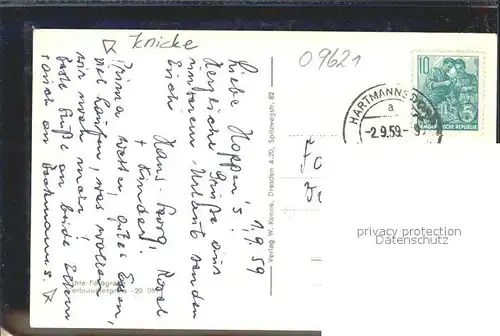 Knicke
09621
1.9.59
Liebe Hoppen's!
Herzliche Grüße aus
unserem Urlaub senden
Euch
Hans-Georg, Rosel
+ Kinder!
Prima Wetter, gutes Essen,
viel laufen, was wollen
wir noch mehr!
Beste Grüße an beide Eltern
+ auch an
Echte Fotografie
Verbraucherpreis -20 DM
Verlag W. Kenne, Dresden A.20, Spitzwegstr. 82
10
DEMOKRATISCHE REPUBLIK
HARTMANNSD
a
-2.9.59.-9
privacy protection
Datenschutz